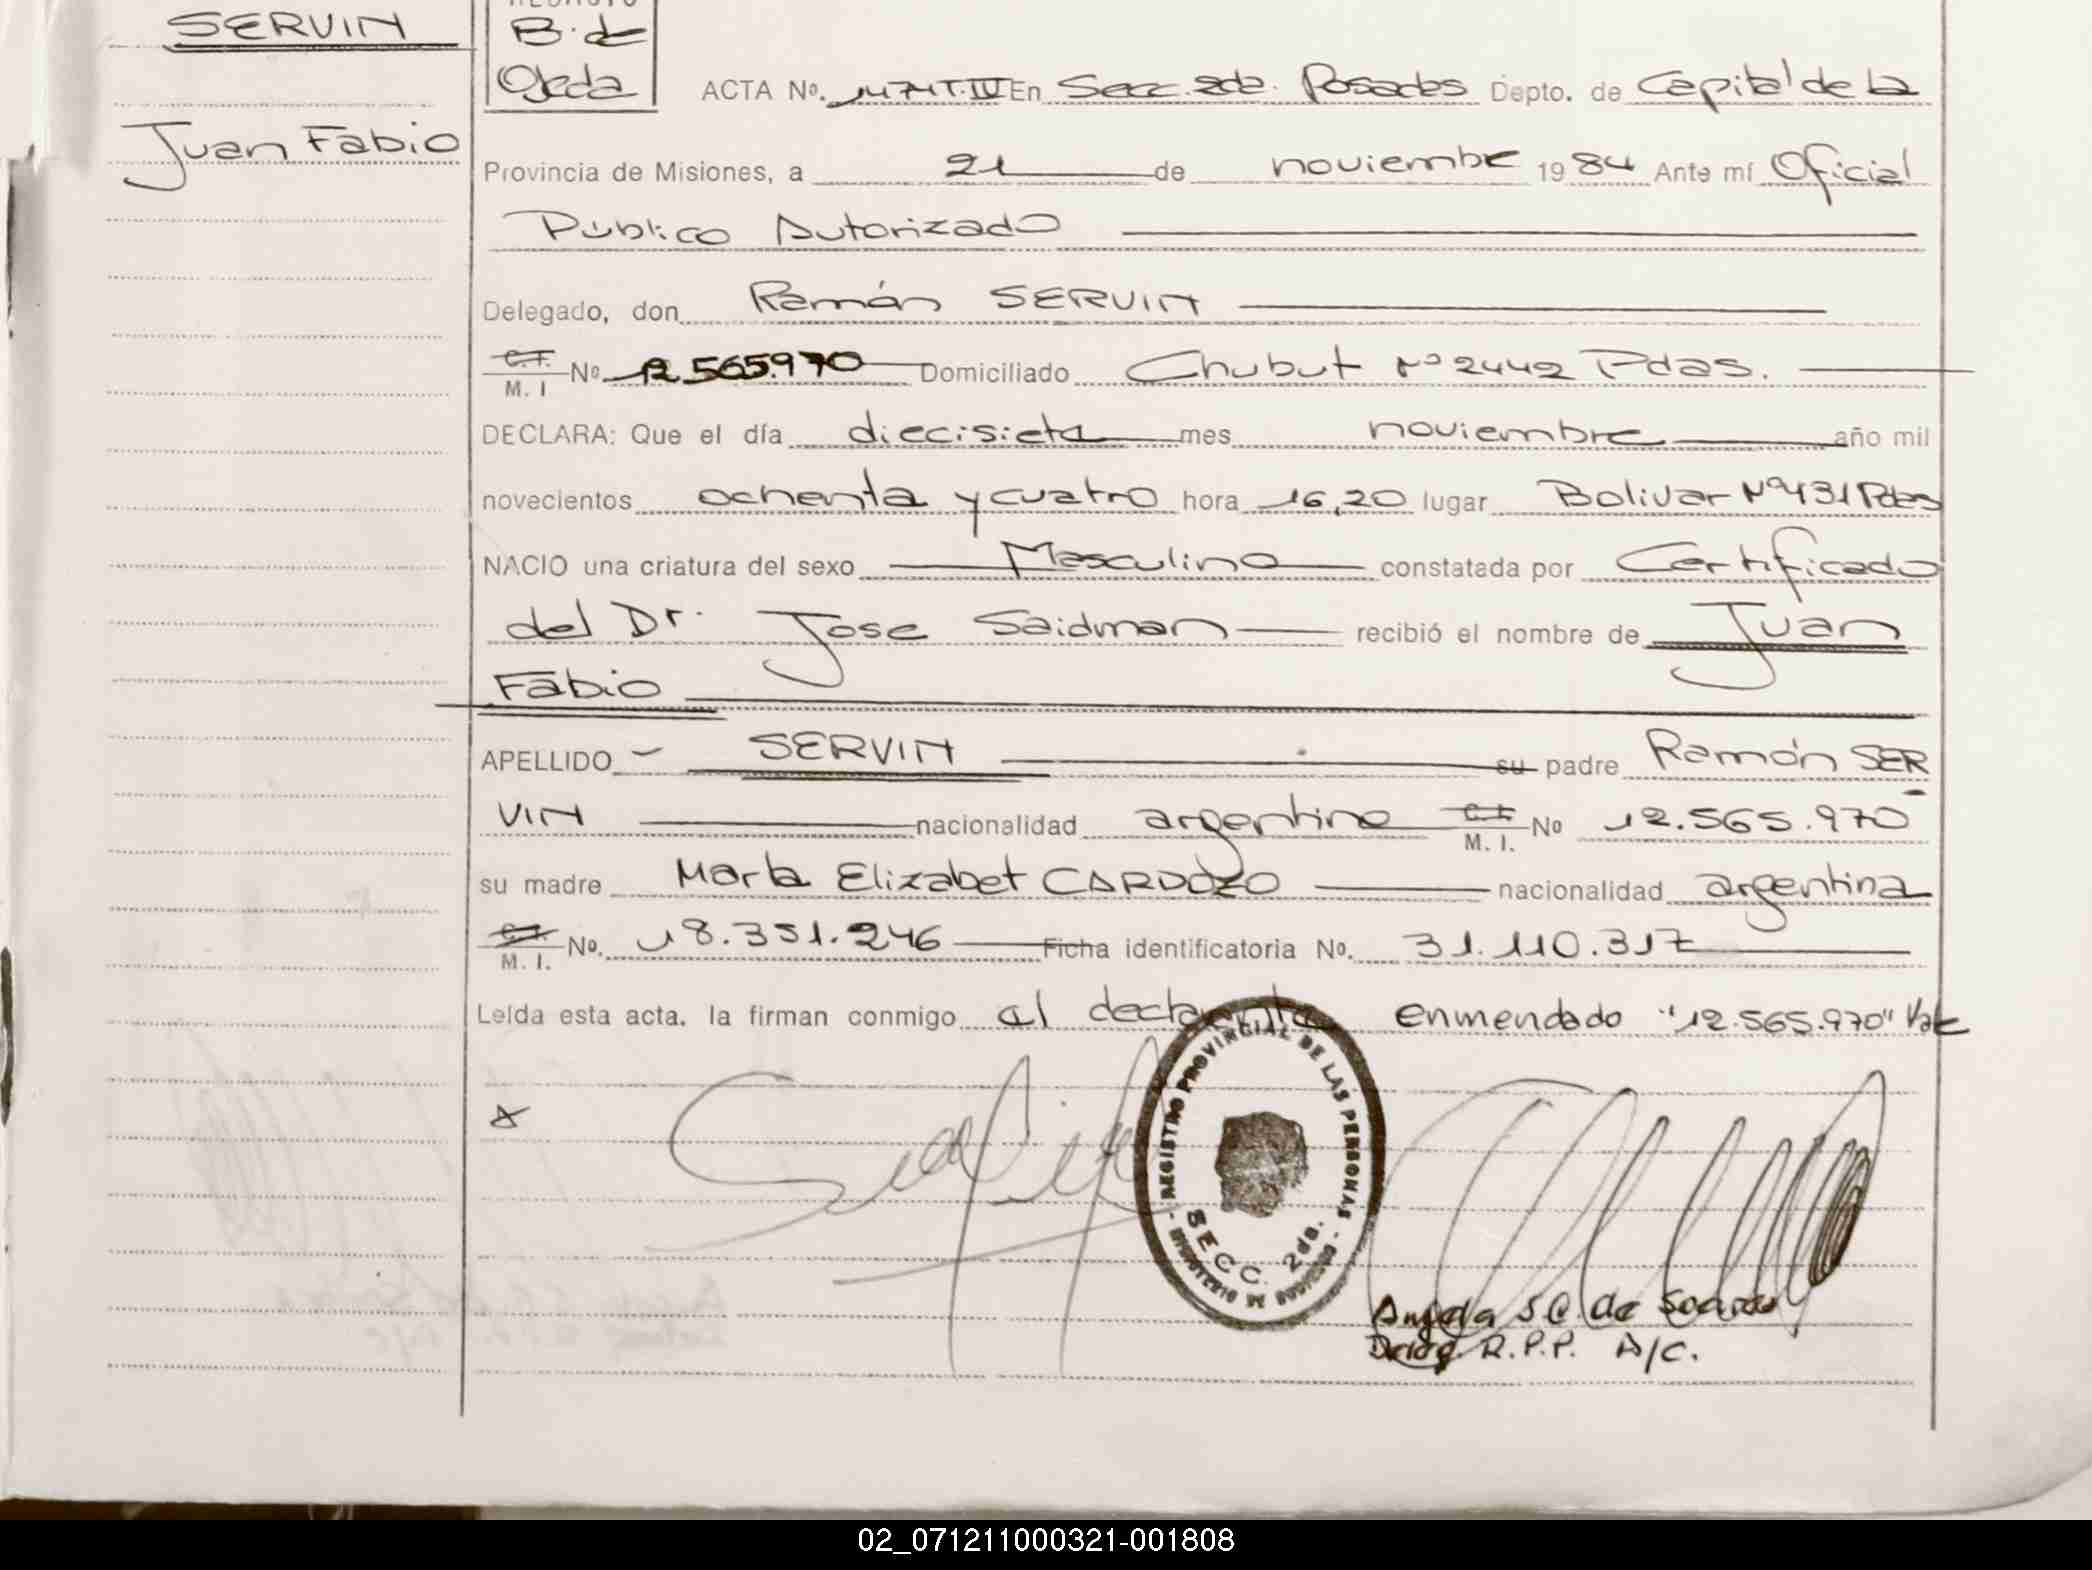 SERVIN
Juan Fabio
REDACTO
B. de
Ojeda
ACTA Nº. 1474 T. IV En Secc. 2da. Posadas Depto. de Capital de la
Provincia de Misiones, a 21 de noviembe 1984 Ante mí Oficial
Público Autorizado
Delegado, don Ramón SERVIN
C.I. M. I Nº 12.565.970 Domiciliado Chubut Nº 2442 Pdas.
DECLARA: Que el día diecisiete mes noviembre año mil
novecientos ochenta y cuatro hora 16,20 lugar Bolivar Nº 431 Pdas
NACIO una criatura del sexo Masculino constatada por Certificado
del Dr. Jose Saidman recibió el nombre de Juan
Fabio
APELLIDO SERVIN su padre Ramón SER
VIN nacionalidad argentino C.I. M. I. Nº 12.565.970
su madre María Elizabet CARDOZO nacionalidad argentina
C.I. M. I. Nº. 18.351.246 Ficha identificatoria No. 31.110.317
Leída esta acta. la firman conmigo el declarante enmendado "12.565.970" Vale
REGISTRO PROVINCIAL DE LAS PERSONAS
SECC. 2da.
MINISTERIO DE GOBIERNO
Angela S C. de Soares
R.P.P. A/C.
02_071211000321-001808